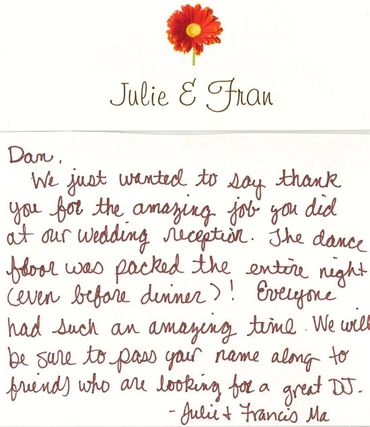 Julie & Fran
Dan,
We just wanted to say thank
you for the amazing job you did
at our wedding reception. The dance
floor was packed the entire night
(even before dinner)! Everyone
had such an amazing time. We will
be sure to pass your name along to
friends who are looking for a great DJ.
- Julie & Francis Ma